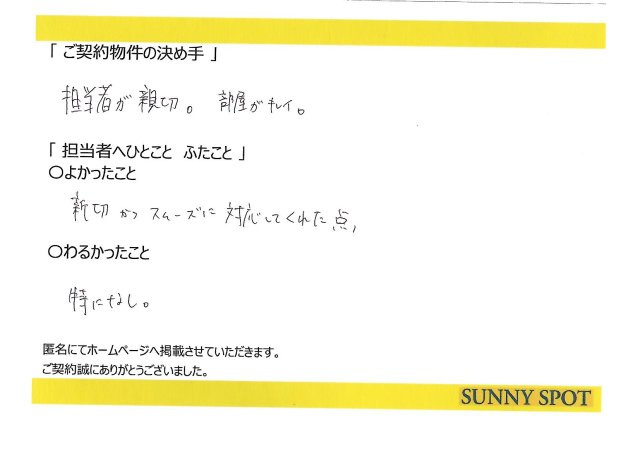 「 ご契約物件の決め手 」
担当者が親切。 部屋がキレイ。
「 担当者へひとこと ふたこと 」
〇よかったこと
親切かつスムーズに対応してくれた点，
〇わるかったこと
特になし。
匿名にてホームページへ掲載させていただきます。
ご契約誠にありがとうございました。
SUNNY SPOT